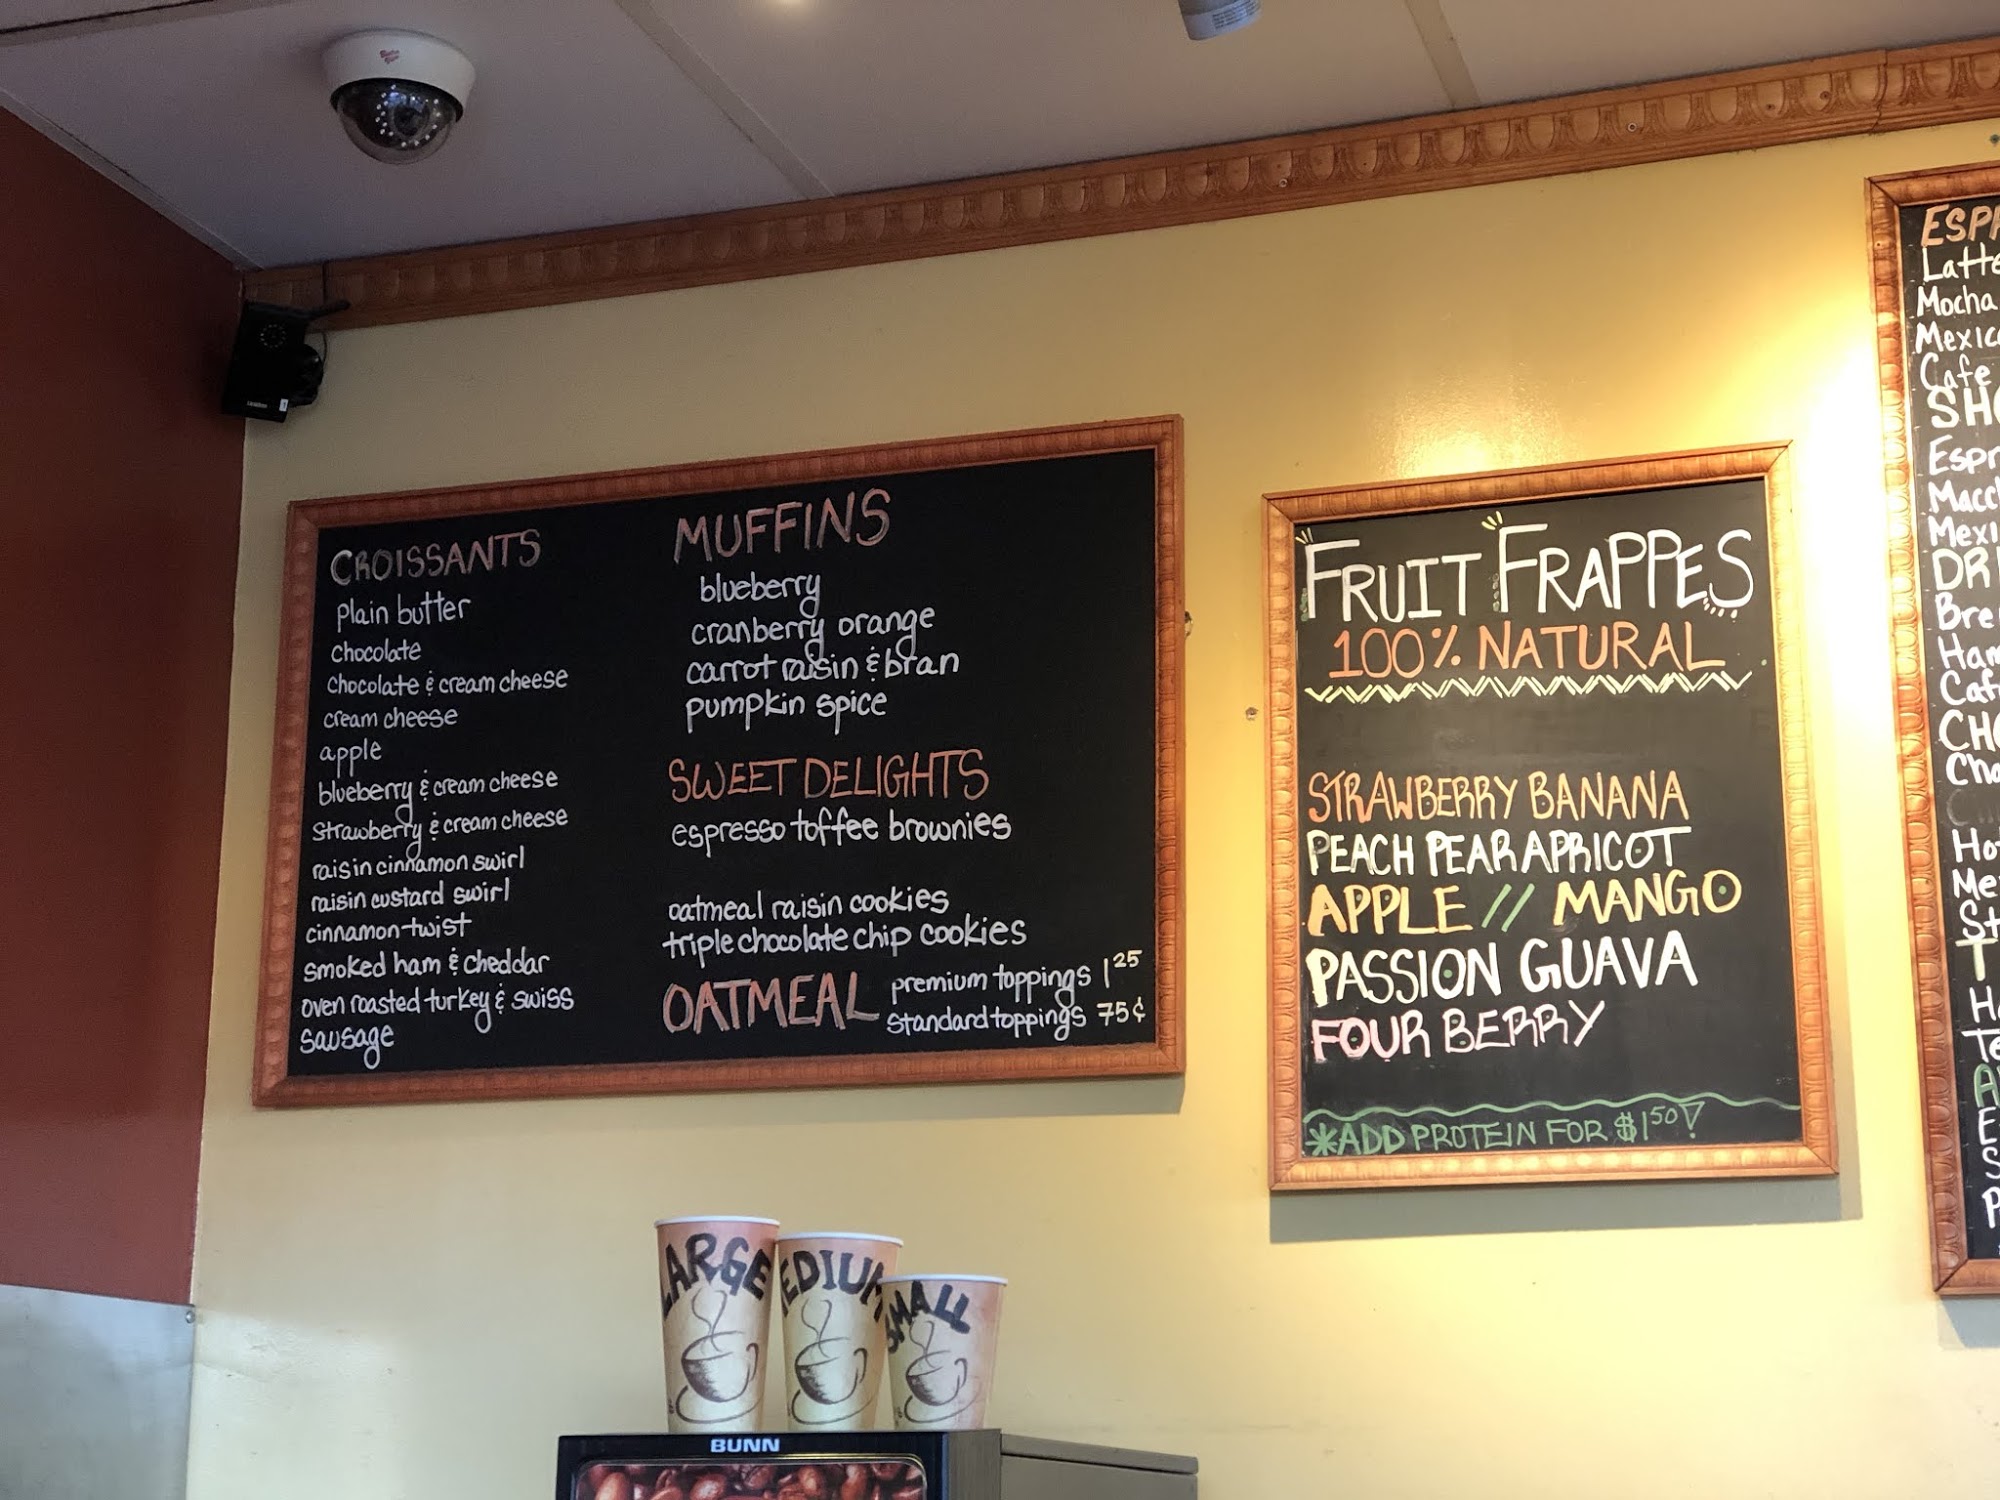 CROISSANTS
plain butter
chocolate
chocolate & cream cheese
cream cheese
apple
blueberry & cream cheese
strawberry & cream cheese
raisin cinnamon swirl
raisin custard swirl
cinnamon-twist
smoked ham & cheddar
oven roasted turkey & swiss
sausage
MUFFINS
blueberry
cranberry orange
carrot raisin & bran
pumpkin spice
SWEET DELIGHTS
espresso toffee brownies
oatmeal raisin cookies
triple chocolate chip cookies
OATMEAL
premium toppings 1 25
standard toppings 75¢
FRUIT FRAPPES
100% NATURAL
STRAWBERRY BANANA
PEACH PEAR APRICOT
APPLE // MANGO
PASSION GUAVA
FOUR BERRY
*ADD PROTEIN FOR $1 50!
ESP
Latte
Mocha
Mexic
Cafe
SH
Espr
Macc
Mexi
DR
Bre
Ham
Caf
CH
Cho
Hot
Me
St
T
H
Te
A
E
S
P
LARGE
EDIUM
SMALL
BUNN